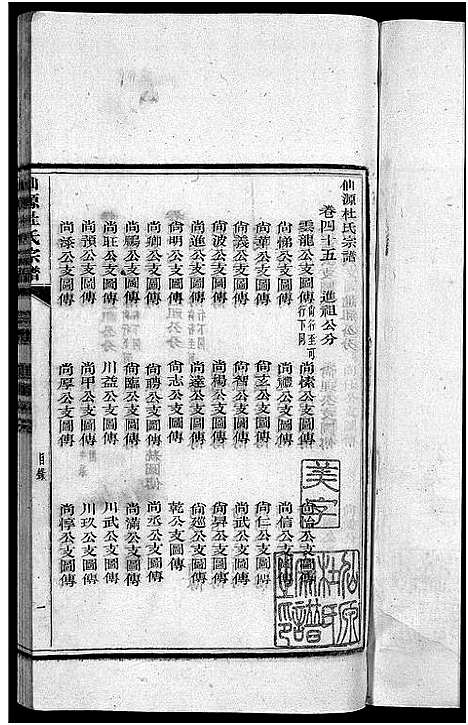 仙源杜氏宗譜
卷四十五　進祖公分
雲龍公支圖傳尚行至可行下同　尚愫公支圖傳
尚悌公支圖傳　尚禮公支圖傳　尚信公支圖傳
尚華公支圖傳　尚玄公支圖傳　尚仁公支圖傳
尚義公支圖傳　尚智公支圖傳　尚武公支圖傳
尚波公支圖傳　尚楊公支圖傳　尚昇公支圖傳
尚進公支圖傳　尚達公支圖傳　尚廵公支圖傳
尚明公支圖傳　尚志公支圖傳　乾公支圖傳
尚卿公支圖傳　尚聘公支圖傳　尚丞公支圖傳
尚賜公支圖傳　尚臨公支圖傳　尚滿公支圖傳
尚旺公支圖傳　川益公支圖傳　川武公支圖傳
尚預公支圖傳　尚甲公支圖傳　川玖公支圖傳
尚添公支圖傳　尚厚公支圖傳　尚惇公支圖傳
仙源杜氏宗譜
目錄
一
美字
仙源杜氏宗譜